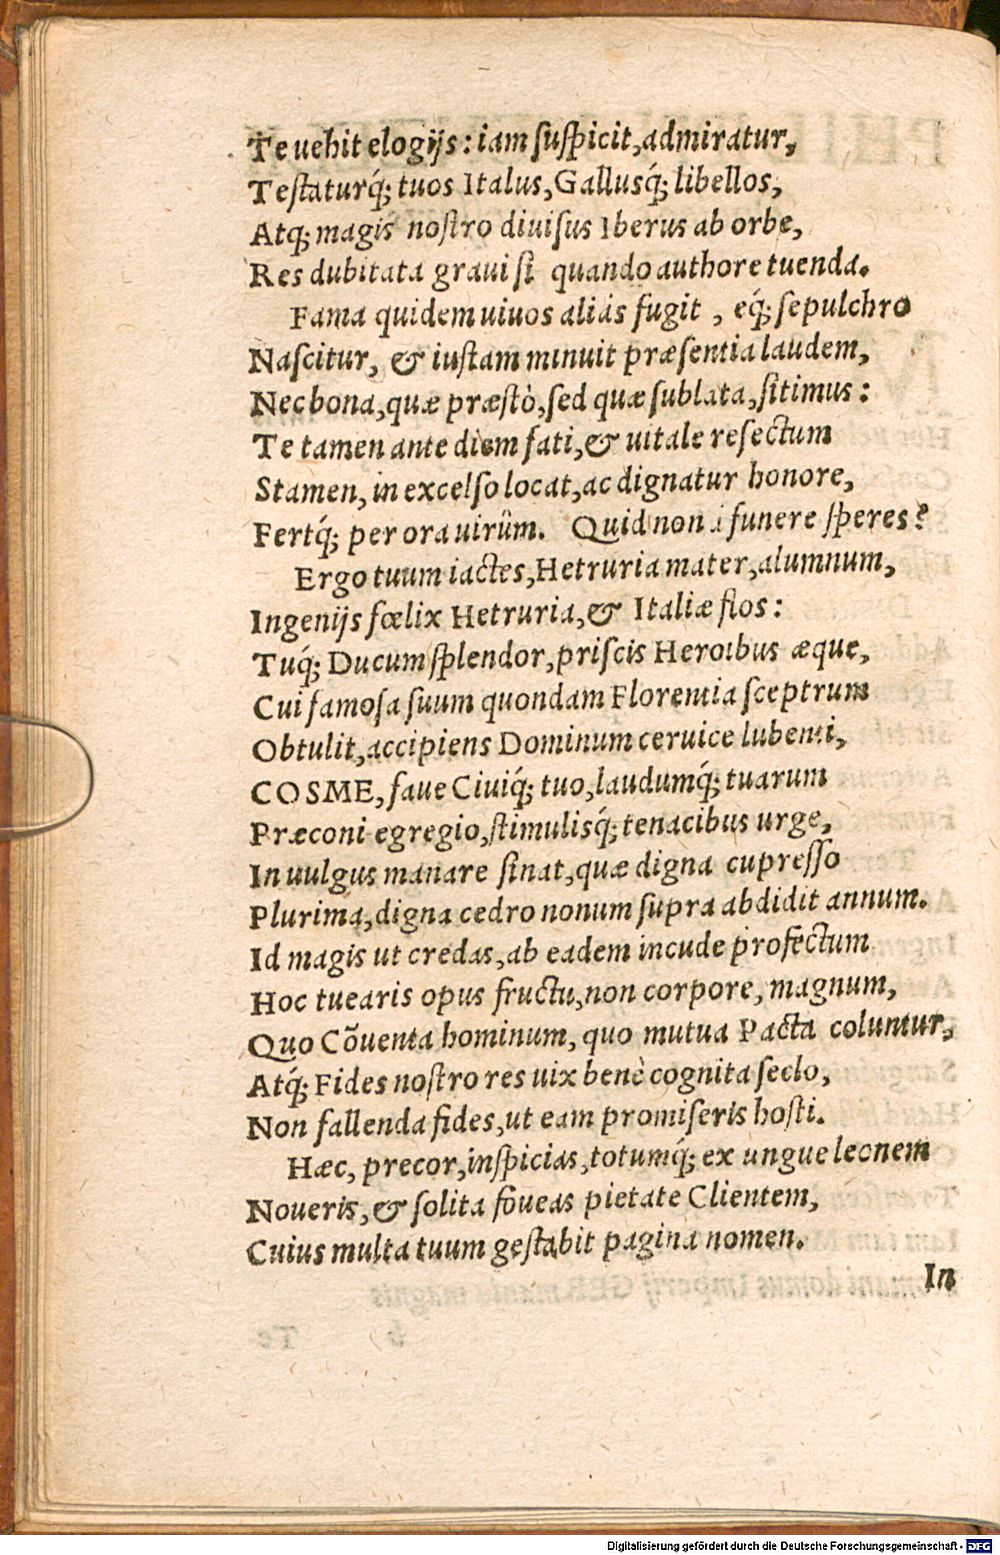 Te uehit elogijs: iam ſuſpicit, admiratur,
Teſtaturq́; tuos Italus, Gallusq́; libellos,
Atq; magis noſtro diuiſus Iberus ab orbe,
Res dubitata graui ſi quando authore tuenda.
Fama quidem uiuos aliàs fugit, eq́; ſepulchro
Naſcitur, & iuſtam minuit præſentia laudem,
Nec bona, quæ præſtò, ſed quæ ſublata, ſitimus:
Te tamen ante diem fati, & uitale reſectum
Stamen, in excelſo locat, ac dignatur honore,
Fertq́; per ora uirûm. Quid non à funere ſperes?
Ergo tuum iactes, Hetruria mater, alumnum,
Ingenijs fœlix Hetruria, & Italiæ flos:
Tuq́; Ducum ſplendor, priſcis Heroibus æque,
Cui famoſa ſuum quondam Florentia ſceptrum
Obtulit, accipiens Dominum ceruice lubenti,
COSME, faue Ciuiq́; tuo, laudumq́; tuarum
Præconi egregio, ſtimulisq́; tenacibus urge,
In uulgus manare ſinat, quæ digna cupreſſo
Plurima, digna cedro nonum ſupra abdidit annum.
Id magis ut credas, ab eadem incude profectum
Hoc tuearis opus fructu, non corpore, magnum,
Quo Cõuenta hominum, quo mutua Pacta coluntur,
Atq́; Fides noſtro res uix benè cognita ſeclo,
Non fallenda fides, ut eam promiſeris hoſti.
Hæc, precor, inſpicias, totumq́; ex ungue leonem
Noueris, & ſolita foueas pietate Clientem,
Cuius multa tuum geſtabit pagina nomen.
In
Digitalisierung gefördert durch die Deutsche Forschungsgemeinschaft - DFG